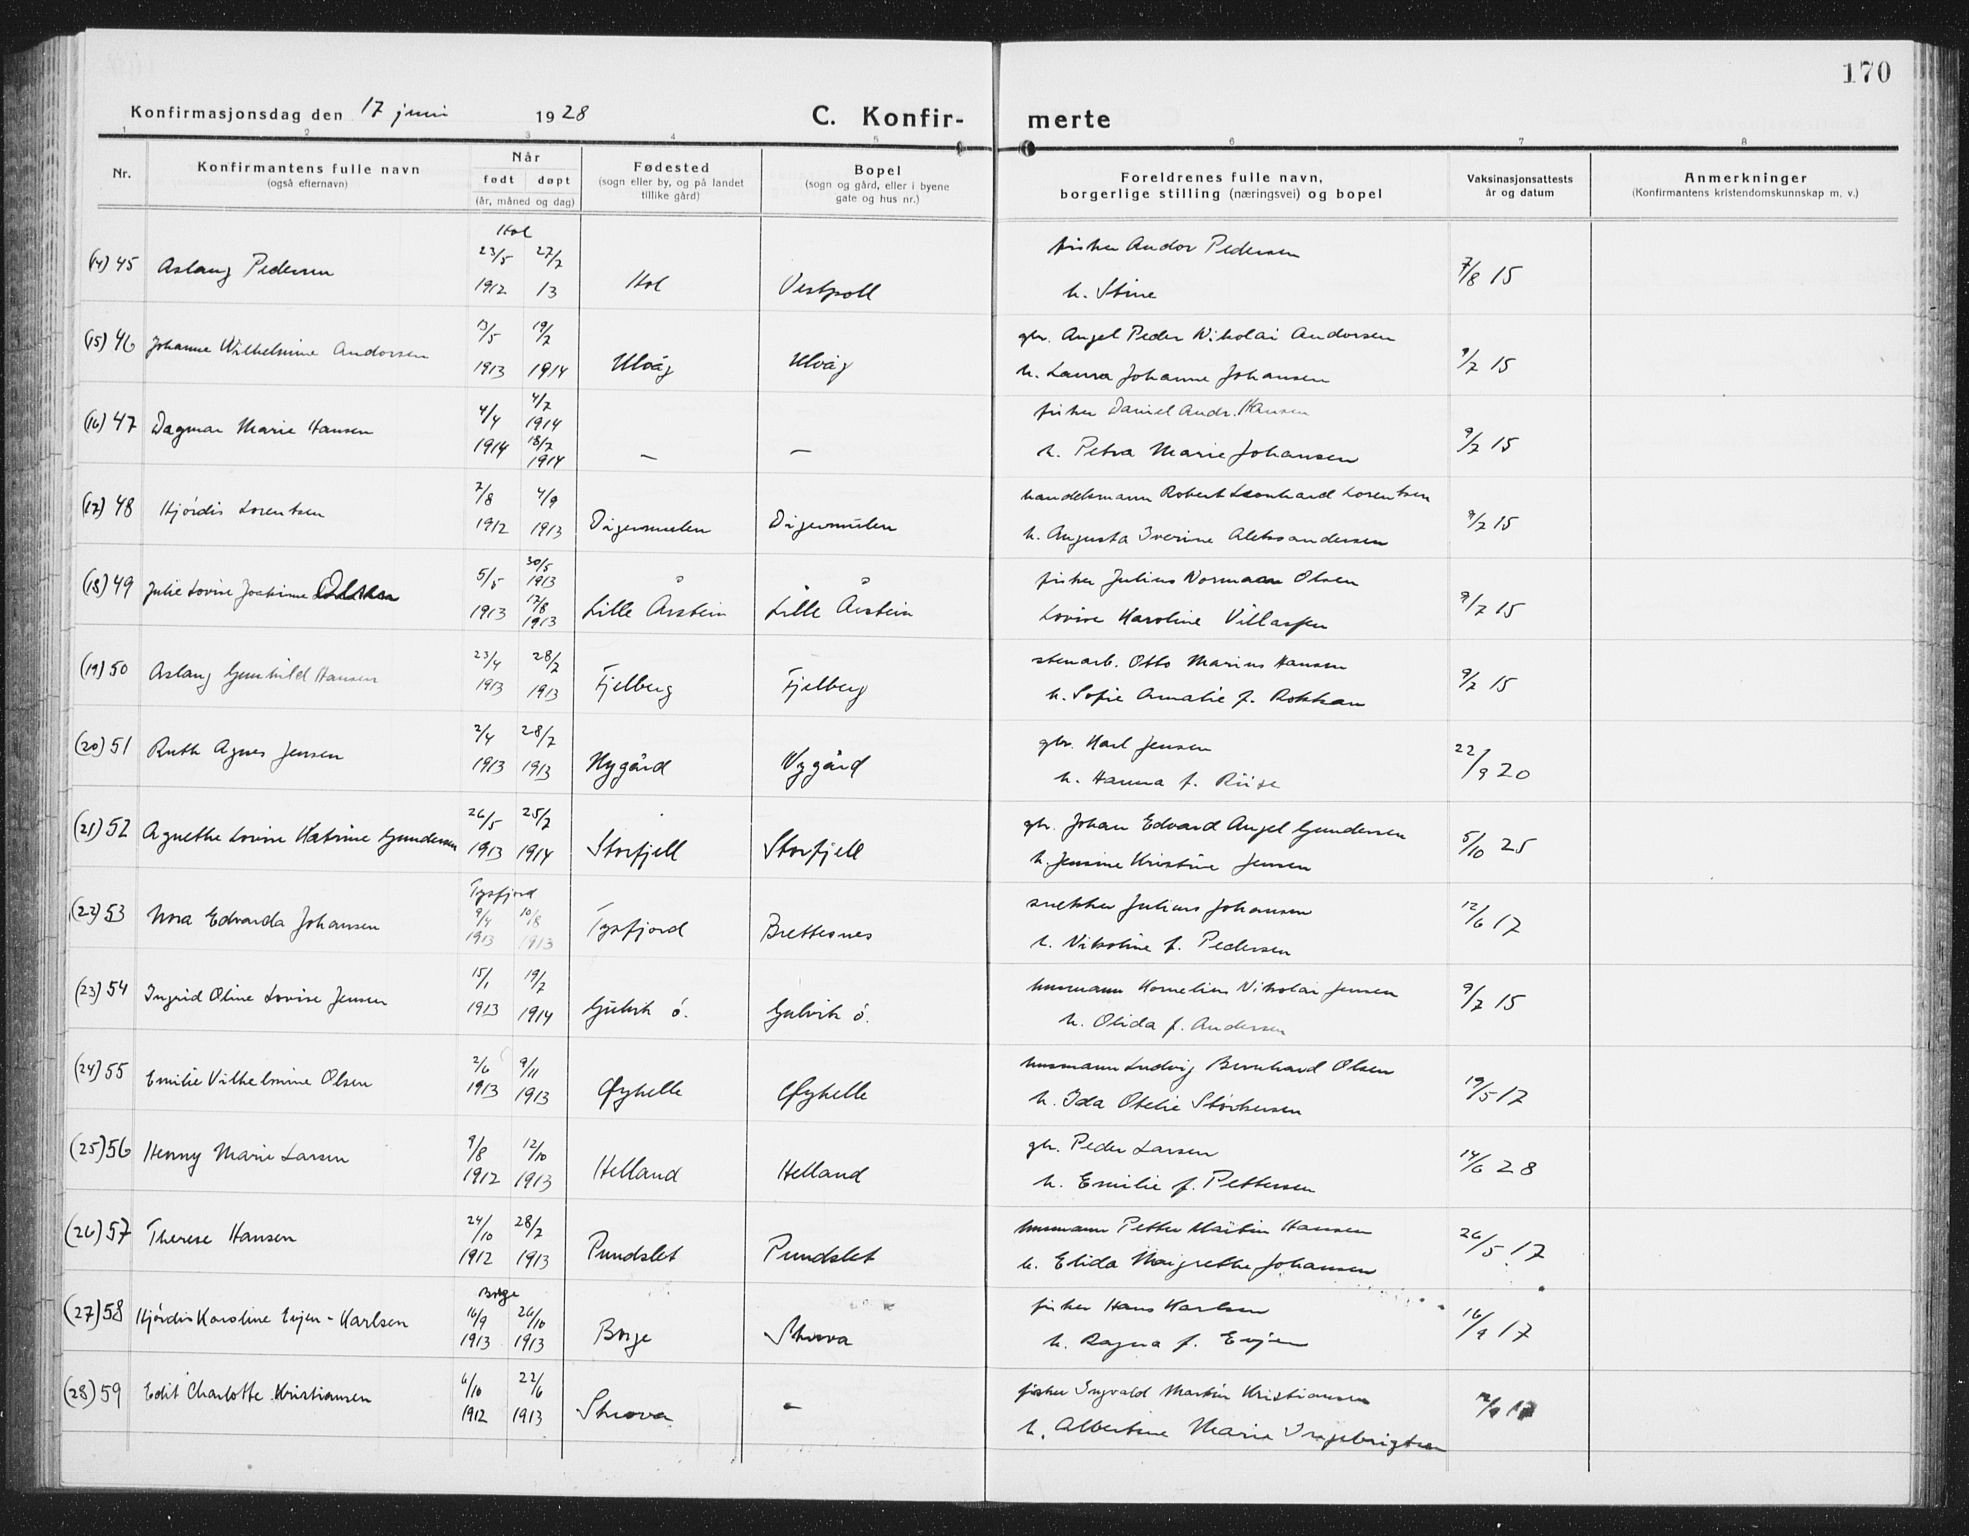 170
Konfirmasjonsdag den 17 juni 1928 C. Konfir- merte
1 2 3 4 5 6 7 8
Nr. Konfirmantens fulle navn (også efternavn) Når født døpt (år, måned og dag) Fødested (sogn eller by, og på landet tillike gård) Bopel (sogn og gård, eller i byene gate og hus nr.) Foreldrenes fulle navn, borgerlige stilling (næringsvei) og bopel Vaksinasjonsattests år og datum Anmerkninger (Konfirmantens kristendomskunnskap m. v.)
Hol
(14) 45 Aslaug Pedersen 23/5 1912 27/7 13 Hol Vestpoll fisker Andor Pedersen
h. Stine 7/8 15
(15) 46 Johanne Wilhelmine Andorsen 13/5 1913 19/7 1914 Ulvåg Ulvåg gbr. Angel Peder Nikolai Andorsen
h. Laura Johanne Johansen 9/7 15
(16) 47 Dagmar Marie Hansen 4/4 1914 4/7 1914 18/7 1914 — — fisker Daniel Andr. Hansen
h. Petra Marie Johansen 9/7 15
(17) 48 Hjördis Lorentsen 7/8 1912 4/9 1913 Digermulen Digermulen handelsmann Robert Leonhard Lorentsen
h. Augusta Iverine Aleksandersen 9/7 15
(18) 49 Julie Lovise Joakime Olsen 5/5 1913 30/5 1913 17/8 1913 Lille Årstein Lille Årstein fisker Julius Normann Olsen
Lovise Karoline Villassen 9/7 15
(19) 50 Aslaug Gunhild Hansen 23/4 1913 28/7 1913 Fjelberg Fjelberg stenarb. Otto Marius Hansen
h. Sofie Amalie f. Rokkan 9/7 15
(20) 51 Ruth Agnes Jensen 2/4 1913 28/7 1913 Nygård Nygård gbr. Karl Jensen
h. Hanna f. Riise 22/9 20
(21) 52 Agnethe Lovise Katrine Gundersen 26/5 1913 25/7 1914 Storfjell Storfjell gbr. Johan Edvard Angel Gundersen
h. Jensine Kristine Jensen 5/10 25
Tysfjord
(22) 53 Nora Edvarda Johansen 9/4 1913 10/8 1913 Tysfjord Brettesnes snekker Julius Johansen
h. Nikoline f. Pedersen 12/6 17
(23) 54 Ingrid Oline Lovise Jensen 15/1 1913 19/7 1914 Gulvik ö. Gulvik ö. husmann Kornelius Nikolai Jensen
h. Olida f. Andersen 9/7 15
(24) 55 Emilie Vilhelmine Olsen 2/6 1913 9/11 1913 Øyhelle Øyhelle husmann Ludvig Bernhard Olsen
h. Ida Otelie Störkersen 19/5 17
(25) 56 Henny Marie Larsen 9/8 1912 12/10 1913 Helland Helland gbr. Peder Larsen
h. Emilie f. Pettersen 14/6 28
(26) 57 Therese Hansen 24/10 1912 28/7 1913 Pundslet Pundslet husmann Petter Martin Hansen
h. Elida Margrethe Johansen 26/5 17
Borge
(27) 58 Hjördis Karoline Evjen-Karlsen 16/9 1913 26/10 1913 Borge Skrova fisker Hans Karlsen
h. Ragna f. Evjen 16/9 17
(28) 59 Edit Charlotte Kristiansen 6/10 1912 22/6 1913 Skrova — fisker Ingvald Martin Kristiansen
h. Albertine Marie Ingebrigtsen